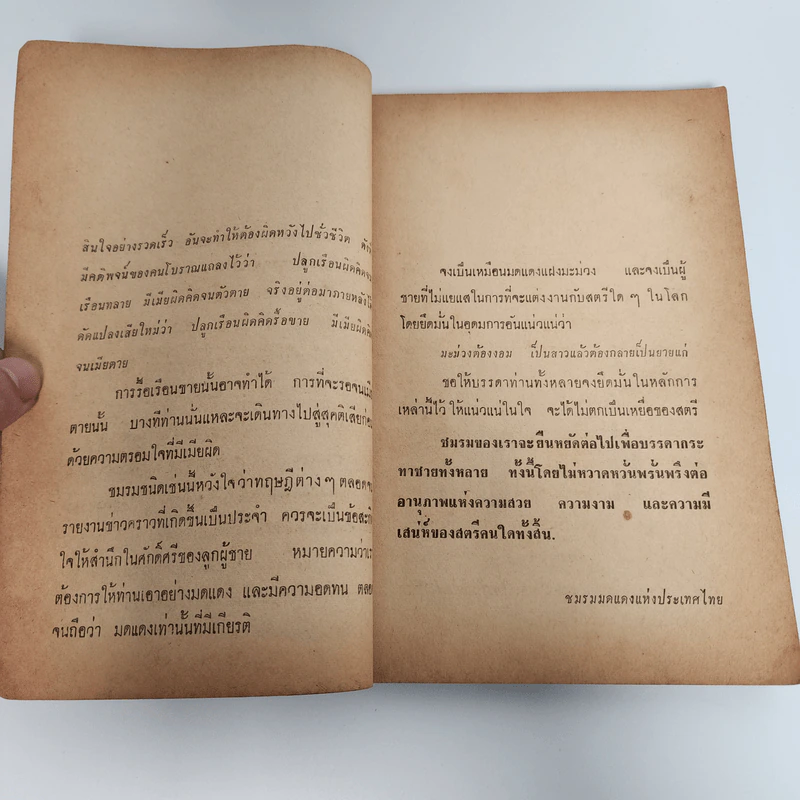 สินใจอย่างรวดเร็ว อันจะทำให้ต้องผิดหวังไปชั่วชีวิต
มีคติพจน์ของคนโบราณแถลงไว้ว่า ปลูกเรือนผิดคิดจน
เรือนทลาย มีเมียผิดคิดจนตัวตาย จริงอยู่ต่อมาภายหลังได้
ดัดแปลงเสียใหม่ว่า ปลูกเรือนผิดคิดรื้อขาย มีเมียผิดคิด
จนเมียตาย
การรื้อเรือนขายนั้นอาจทำได้ การที่จะรอจนเมีย
ตายนั้น บางทีท่านนั่นแหละจะเดินทางไปสู่สุคติเสียก่อน
ด้วยความตรอมใจที่มีเมียผิด
ชมรมชนิดเช่นนี้หวังใจว่าทฤษฎีต่าง ๆ ตลอดจน
รายงานข่าวคราวที่เกิดขึ้นเป็นประจำ ควรจะเป็นข้อสะกิด
ใจให้สำนึกในศักดิ์ศรีของลูกผู้ชาย หมายความว่าเรา
ต้องการให้ท่านเอาอย่างมดแดง และมีความอดทน ตลอด
จนถือว่า มดแดงเท่านั้นที่มีเกียรติ
จงเป็นเหมือนมดแดงแฝงมะม่วง และจงเป็นผู้
ชายที่ไม่แยแสในการที่จะแต่งงานกับสตรีใด ๆ ในโลก
โดยยึดมั่นในอุดมการอันแน่วแน่ว่า
มะม่วงต้องงอม เป็นสาวแล้วต้องกลายเป็นยายแก่
ขอให้บรรดาท่านทั้งหลายจงยึดมั่นในหลักการ
เหล่านี้ไว้ ให้แน่วแน่ในใจ จะได้ไม่ตกเป็นเหยื่อของสตรี
ชมรมของเราจะยืนหยัดต่อไปเพื่อบรรดากระ
ทาชายทั้งหลาย ทั้งนี้โดยไม่หวาดหวั่นพรั่นพรึงต่อ
อานุภาพแห่งความสวย ความงาม และความมี
เสน่ห์ของสตรีคนใดทั้งสิ้น.
ชมรมมดแดงแห่งประเทศไทย